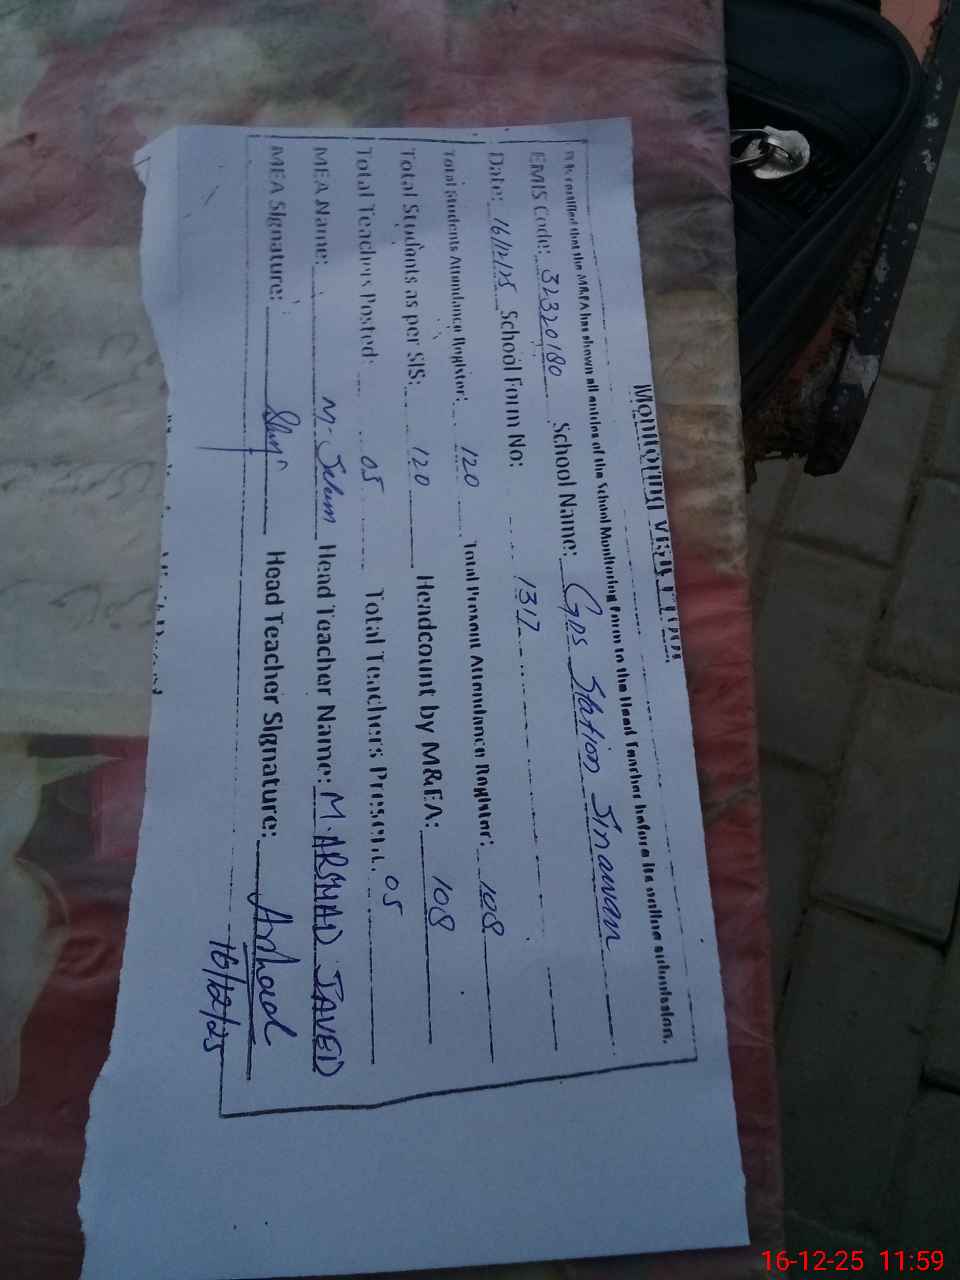 Monitoring Visit Proof
It is certified that the M&EA has shown all entries of the School Monitoring Form to the Head Teacher before its online submission.
EMIS Code: 32320180 School Name: GPS Station Sinawan
Date: 16/12/25 School Form No: 1317
Total Students Attendance Register: 120 Total Present Attendance Register: 108
Total Students as per SIS: 120 Headcount by M&EA: 108
Total Teachers Posted: 05 Total Teachers Present: 05
MEA Name: M. Head Teacher Name: M. ARSHAD JAVED
MEA Signature: Head Teacher Signature: Arshad
16/12/25
16-12-25 11:59